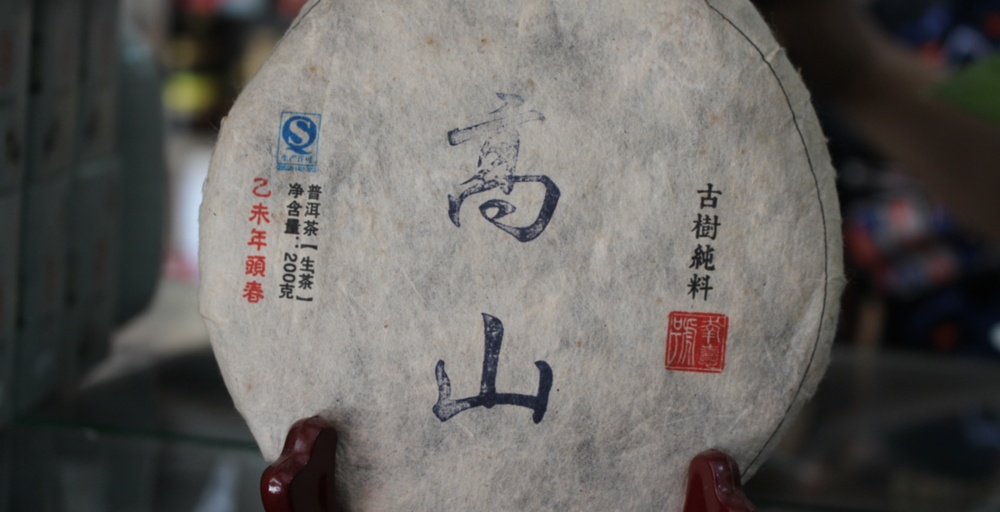 高山
古樹純料
普洱茶【生茶】
净含量：200克
乙未年頭春